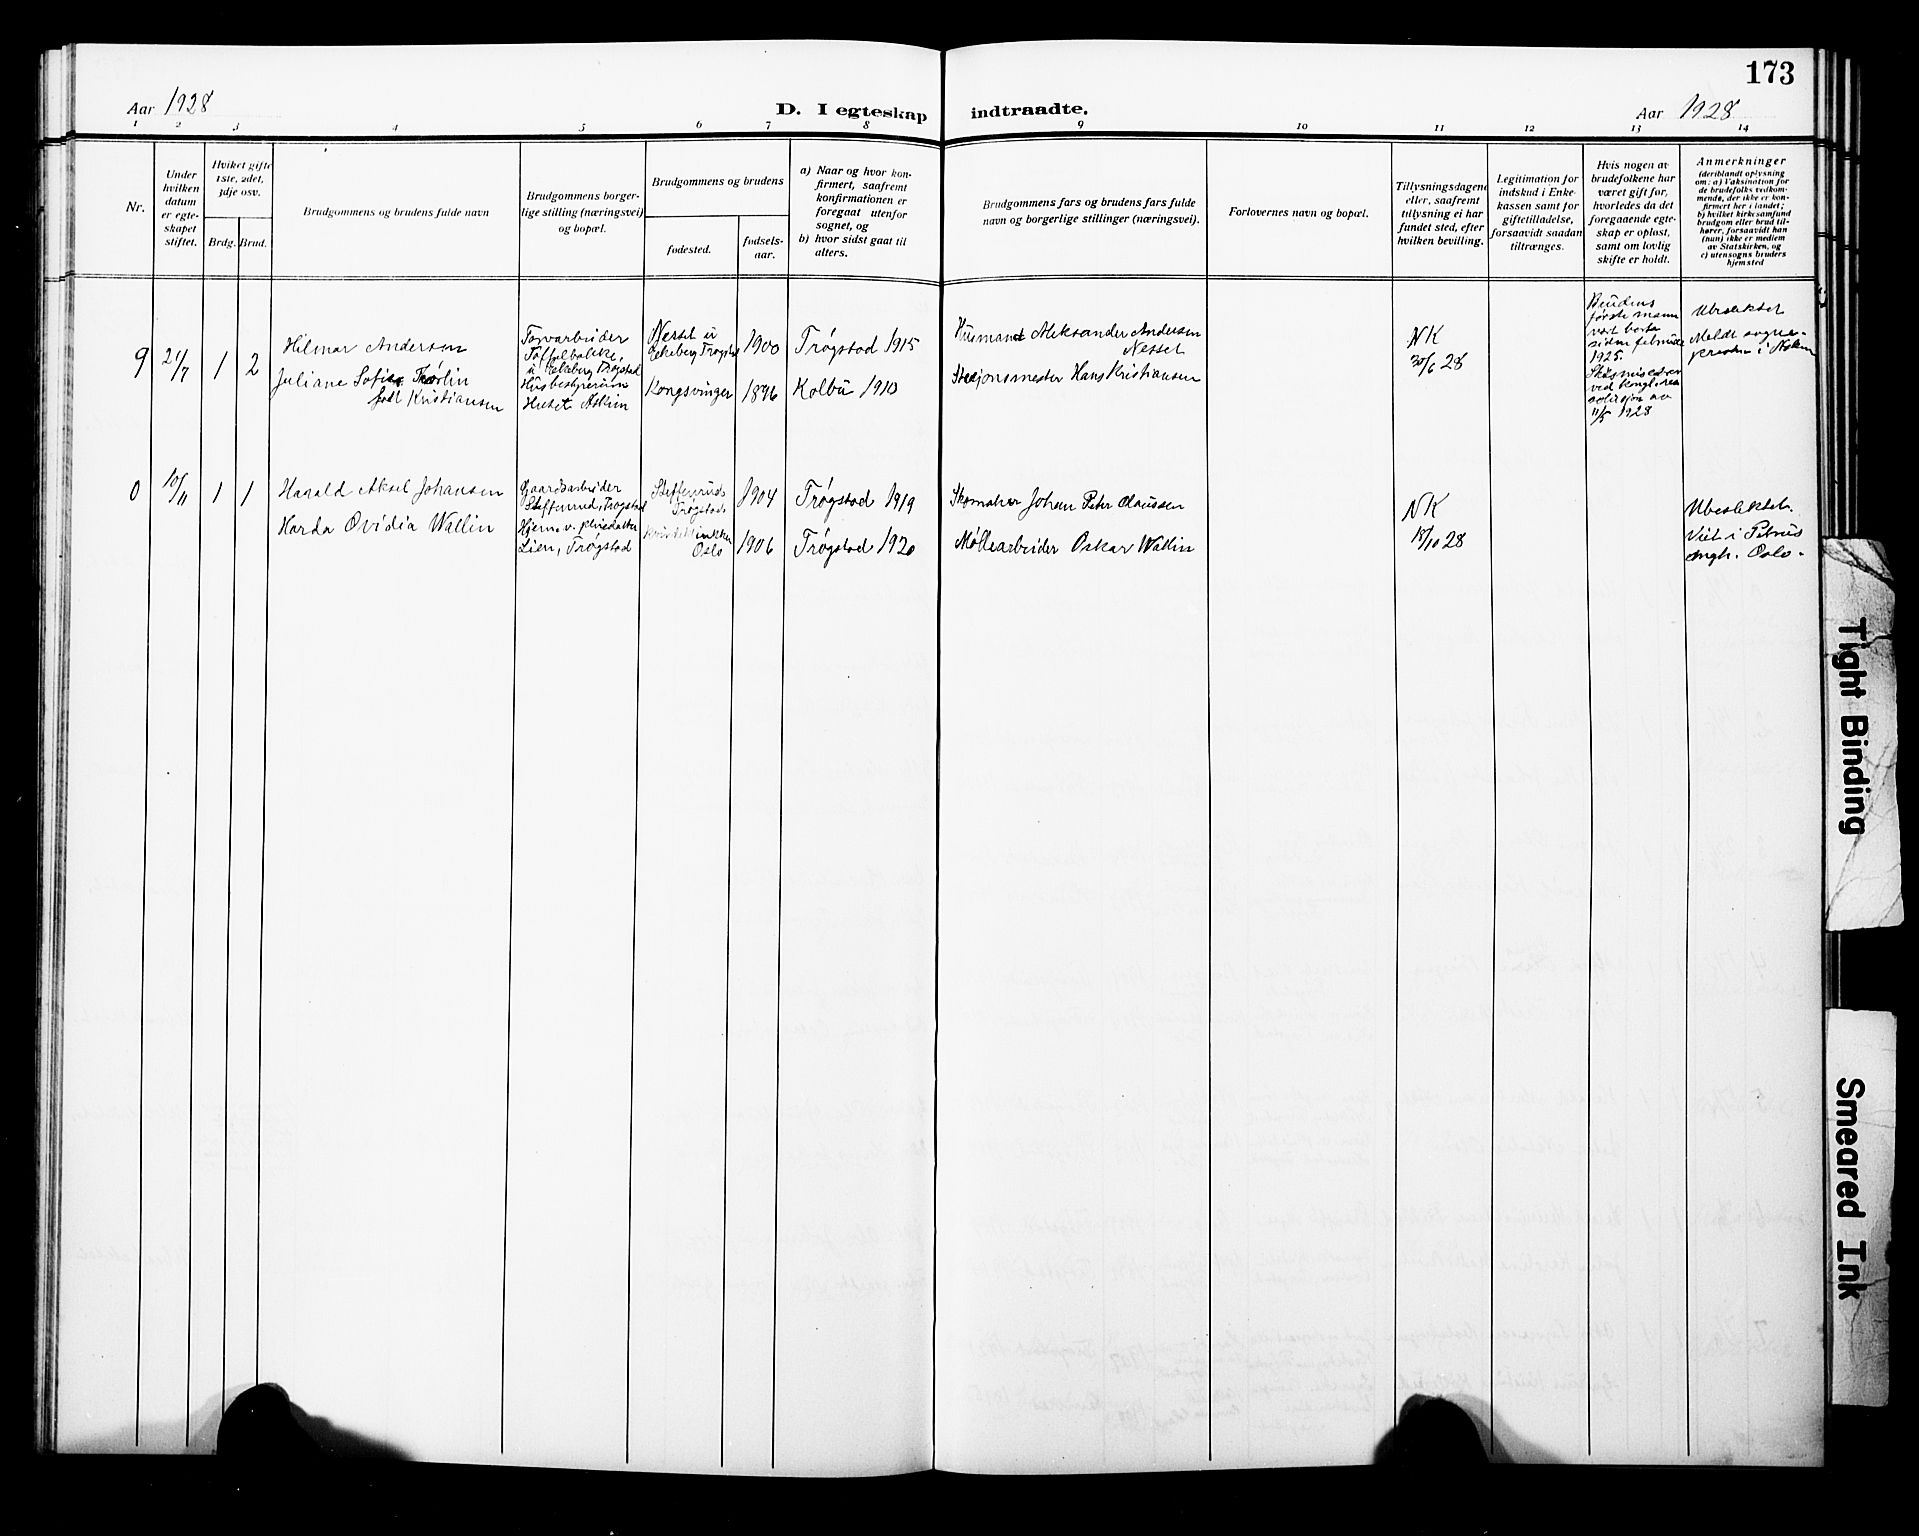 173
Aar 1928
D. I egteskap indtraadte.
Aar 1928
1 2 3 4 5 6 7 8 9 10 11 12 13 14
Nr.
Under
hvilken
datum
er egte-
skapet
stiftet.
Hviket gifte
1ste, 2det,
3dje osv.
Brdg. Brud.
Brudgommens og brudens fulde navn
Brudgommens borger-
lige stilling (næringsvei)
og bopæl.
Brudgommens og brudens
fødested.
fødsels-
aar.
a) Naar og hvor kon-
firmert, saafremt
konfirmationen er
foregaat utenfor
sognet, og
b) hvor sidst gaat til
alters.
Brudgommens fars og brudens fars fulde
navn og borgerlige stillinger (næringsvei).
Forlovernes navn og bopæl.
Tillysningsdagene
eller, saafremt
tillysning ei har
fundet sted, efter
hvilken bevilling.
Legitimation for
indskud i Enke-
kassen samt for
giftetilladelse,
forsaavidt saadan
tiltrænges.
Hvis nogen av
brudefolkene har
været gift før,
hvorledes da det
foregaaende egte-
skap er opløst,
samt om lovlig
skifte er holdt.
Anmerkninger
(deriblandt oplysning
om: a) Vaksination for
de brudefolks vedkom-
mende, der ikke er kon-
firmert her i landet;
b) hvilket kirkesamfund
brudgom eller brud til-
hører, forsaavidt han
(hun) ikke er medlem
av Statskirken, og
c) utensogns bruders
hjemsted
9
21/7
1
2
Hilmar Andersen
Juliane Sofie Thorlin
født Kristiansen
Torvarbeider
Toffelbakke,
u Ekeberg Trøgstad
Husbestyrerinn
Huset Askim
Nesset u
Eekeberg Trøgstad
Kongsvinger
1900
1896
Trøgstad 1915
Kolbu 1910
Husmand Aleksander Andersen
Nesset
Stasjonsmester Hans Kristiansen
NK
30/6 28
Brudens
første mann
vært borte
siden februar
1925.
ved kongl. res
av
11/5 1928
Ubeslektet
Meldt sogne-
presten i Askim
0
10/11
1
1
Harald Aksel Johansen
Harda Ovidia Wallin
Gaardsarbeider
Steffenrud, Trøgstad
Hjem. v. pleiedatter
Lien, Trøgstad
Steffenrud
Trøgstad
Oslo
1904
1906
Trøgstad 1919
Trøgstad 1920
Skomaker Johan Peter Claussen
Møllearbeider Oskar Wallin
NK
18/10 28
Ubeslektet.
Viet i Petrus
mgh. Oslo.
Tight Binding
Smeared Ink